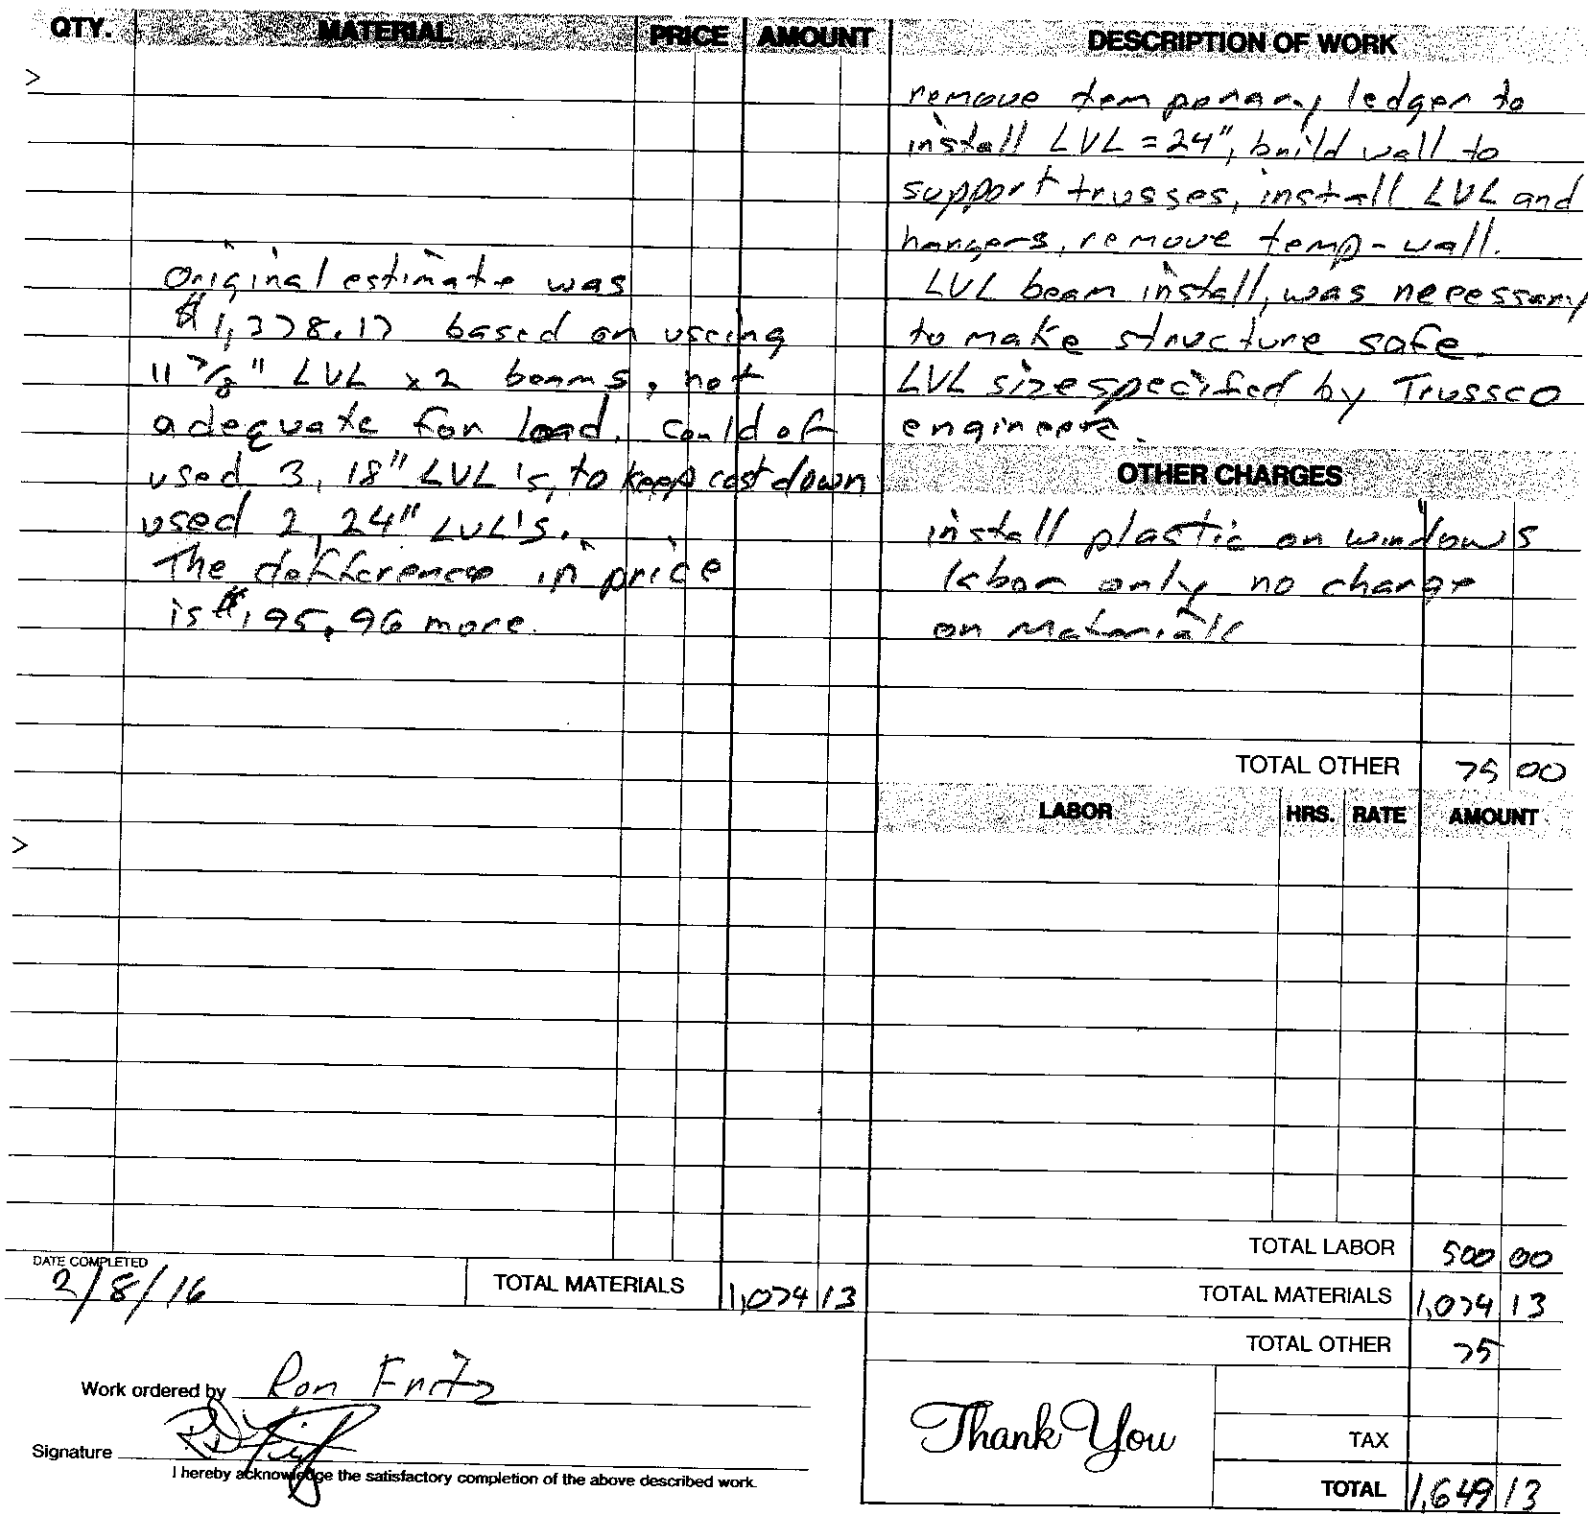 QTY. MATERIAL PRICE AMOUNT
>
Original estimate was
$1,378.17 based on useing
11 7/8" LVL x2 beams, not
adequate for load. Could of
used 3, 18" LVL's, to keep cost down
used 2, 24" LVL's.
The defference in price
is $195.96 more.
>
DATE COMPLETED
2/8/16
TOTAL MATERIALS 1,074 13
Work ordered by Ron Fritz
Signature
I hereby acknowledge the satisfactory completion of the above described work.
DESCRIPTION OF WORK
remove temporary ledger to
install LVL = 24", build wall to
support trusses, install LVL and
hangers, remove temp-wall.
LVL beam install, was necessary
to make structure safe
LVL size specified by Trussco
engineers.
OTHER CHARGES
install plastic on windows
labor only no charge
on materials
TOTAL OTHER 75 00
LABOR HRS. RATE AMOUNT
TOTAL LABOR 500 00
TOTAL MATERIALS 1,074 13
TOTAL OTHER 75
Thank You
TAX
TOTAL 1,649 13